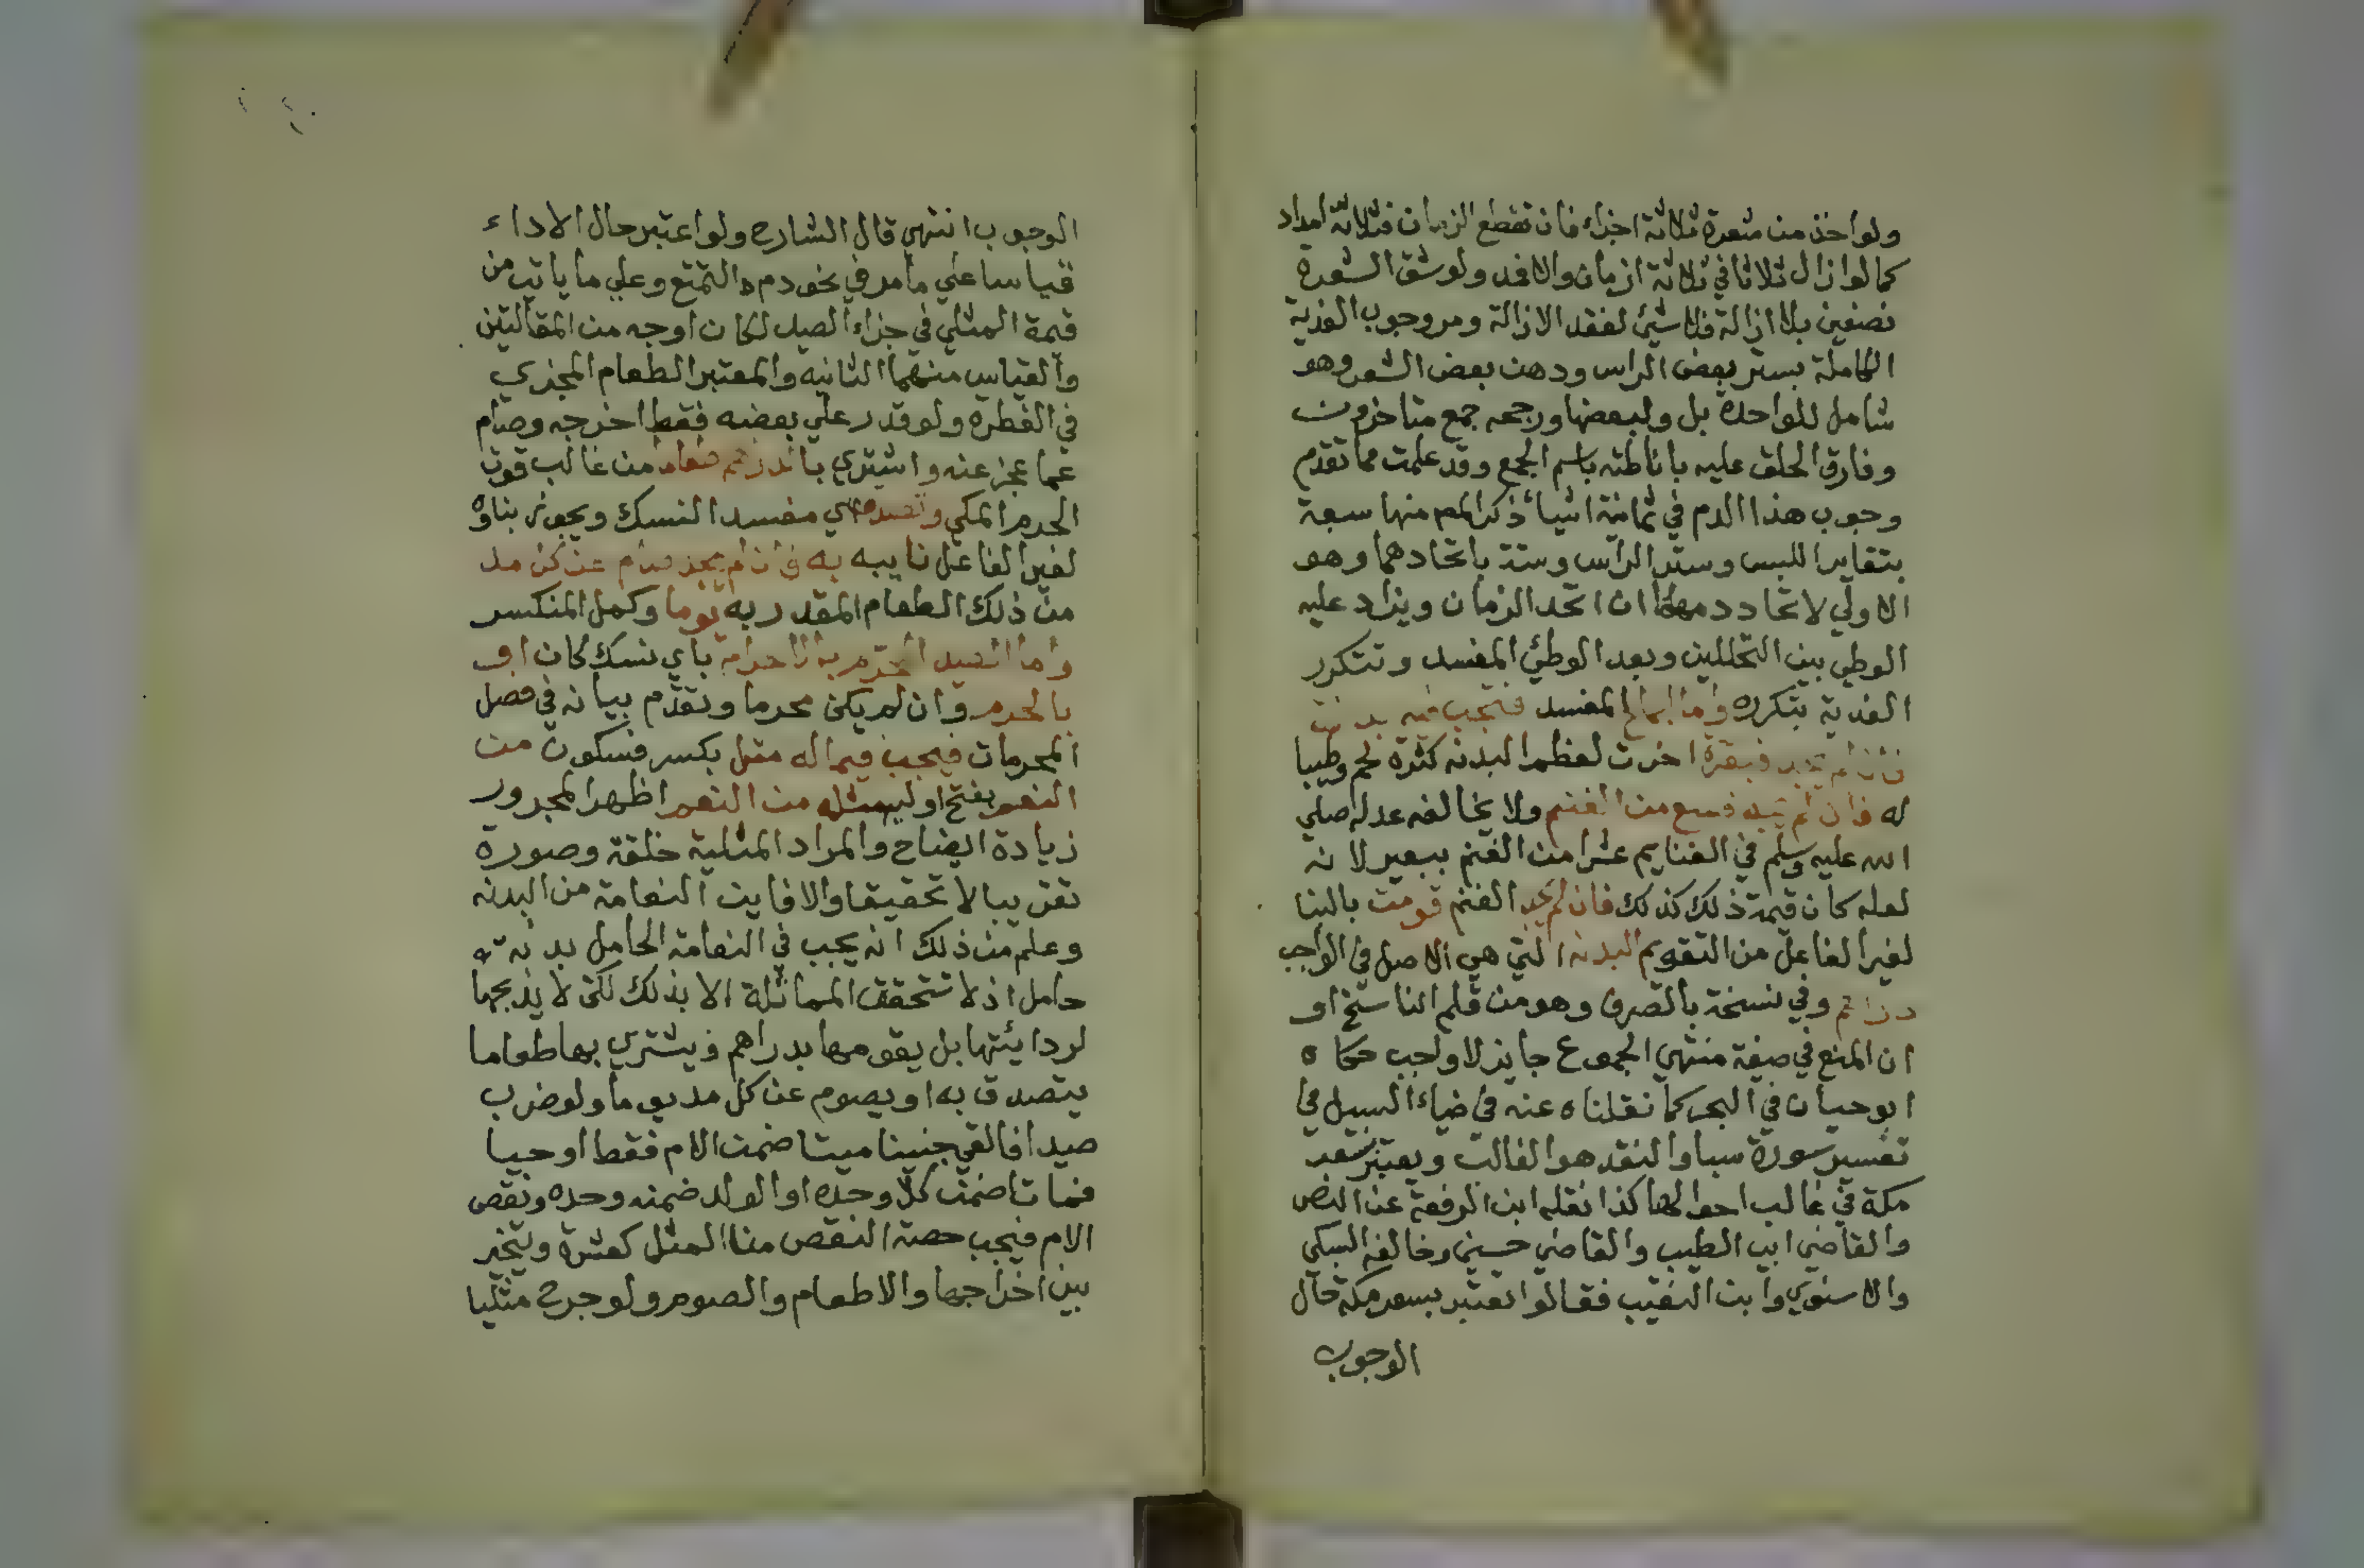 ولو اخذ من شعرة ثلاثة اجزاء فان تقطع الزمان فثلاثة امداد
كما لو ازال ثلاثا في ثلاثة ازمان والا فمد ولو شق الشعرة
نصفين بلا ازالة فلا شيئ لفقد الازالة ومر وجوب الفدية
الكاملة بستر بعض الراس ودهن بعض الشعر وهو
شامل للواحدة بل ولبعضها ورجحه جمع متاخرون
وفارق الحلق عليه باناطته باسم الجمع وقد علمت مما تقدم
وجوب هذا الدم في ثمانية اشيا ذكر المص منها سبعة
بتغاير اللبس وستر الراس وستة باتحادهما وهو
الاولي لاتحاد دمهما ان اتحد الزمان ويزاد عليه
الوطي بين التحللين وبعد الوطئ المفسد وتتكرر
الفدية بتكرره واما الجماع المفسد فتجب فيه بدنة
فان لم يجد فبقرة اخرت لعظم البدنه كثرة لحم وطيبا
له فان لم يجد فسبع من الغنم ولا يخالفه عدله صلي
الله عليه وسلم في الغنايم عشرا من الغنم ببعير لانه
لعله كان قيمة ذلك كذلك فان لم يجد الغنم قومت بالبنا
لغير الفاعل من التقويم البدنه التي هي الاصل في الواجب
دراهم وفي نسخة بالصرف وهو من قلم الناسخ او
ان المنع في صيغة منتهي الجموع جايز لا واجب حكاه
ابو حيان في البحر كما نقلناه عنه في ضياء السبيل في
تفسير سورة سبا والنقد هو الغالب ويعتبر سعر
مكة في غالب احوالها كذا نقله ابن الرفعة عن النص
والقاضي ابي الطيب والقاضي حسين وخالفه السبكي
والاسنوي وابن النقيب فقالوا تعتبر بسعر مكة حال
الوجوب
الوجوب انتهي قال الشارح ولو اعتبر حال الاداء
قياسا علي ما مر في نحو دم التمتع وعلي ما ياتي من
قيمة المثلي في جزاء الصيد لكان اوجه من المقالتين
والقياس منهما الثانيه والمعتبر الطعام المجزي
في الفطره ولو قدر علي بعضه فقط اخرجه وصام
عما عجز عنه واشتري بالدراهم طعاما من غالب قوت
الحرم المكي وتصدق اي مفسد النسك ويجوز بناوه
لغير الفاعل نايبه به فان لم يجد صام عن كل مد
من ذلك الطعام المقدر به يوما وكمل المنكسر
واما الصيد المحرم بالاحرام باي نسك كان او
بالحرم وان لم يكن محرما وتقدم بيانه في فصل
المحرمات فيجب فيما له مثل بكسر فسكون من
النعم بفتح اوليه مثله من النعم اظهر المجرور
زيادة ايضاح والمراد المثلية خلقة وصورة
تقريبا لا تحقيقا والا فاين النعامة من البدنه
وعلم من ذلك انه يجب في النعامة الحامل بدنة
حامل اذ لا تتحقق المماثلة الا بذلك لكن لا يذبحها
لردائتها بل يقومها بدراهم ويشتري بها طعاما
يتصدق به او يصوم عن كل مد يوما ولو ضرب
صيدا فالقي جنينا ميتا ضمن الام فقط او حيا
فماتا ضمن كلا وحده او الولد ضمنه وحده ونقص
الام فيجب حصة النقص من المثل كعشرة ويتخير
بين اخراجها والاطعام والصوم ولو جرح مثليا